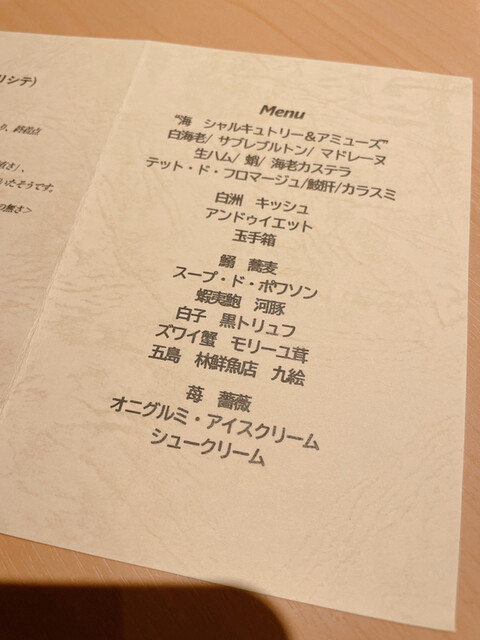 リシテ)
Menu
"海 シャルキュトリー&アミューズ"
白海老/ サブレブルトン/ マドレーヌ
生ハム/ 蛸/ 海老カステラ
テット・ド・フロマージュ/鮟肝/カラスミ
白洲 キッシュ
アンドゥイエット
玉手箱
鰯 蕎麦
スープ・ド・ポワソン
蝦夷鮑 河豚
白子 黒トリュフ
ズワイ蟹 モリーユ茸
五島 林鮮魚店 九絵
苺 薔薇
オニグルミ・アイスクリーム
シュークリーム
いたそうです。
の無さ>